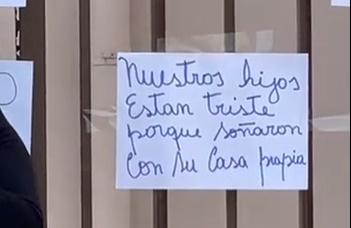 Nuestros hijos
Estan triste
porque soñaron
Con su Casa propia